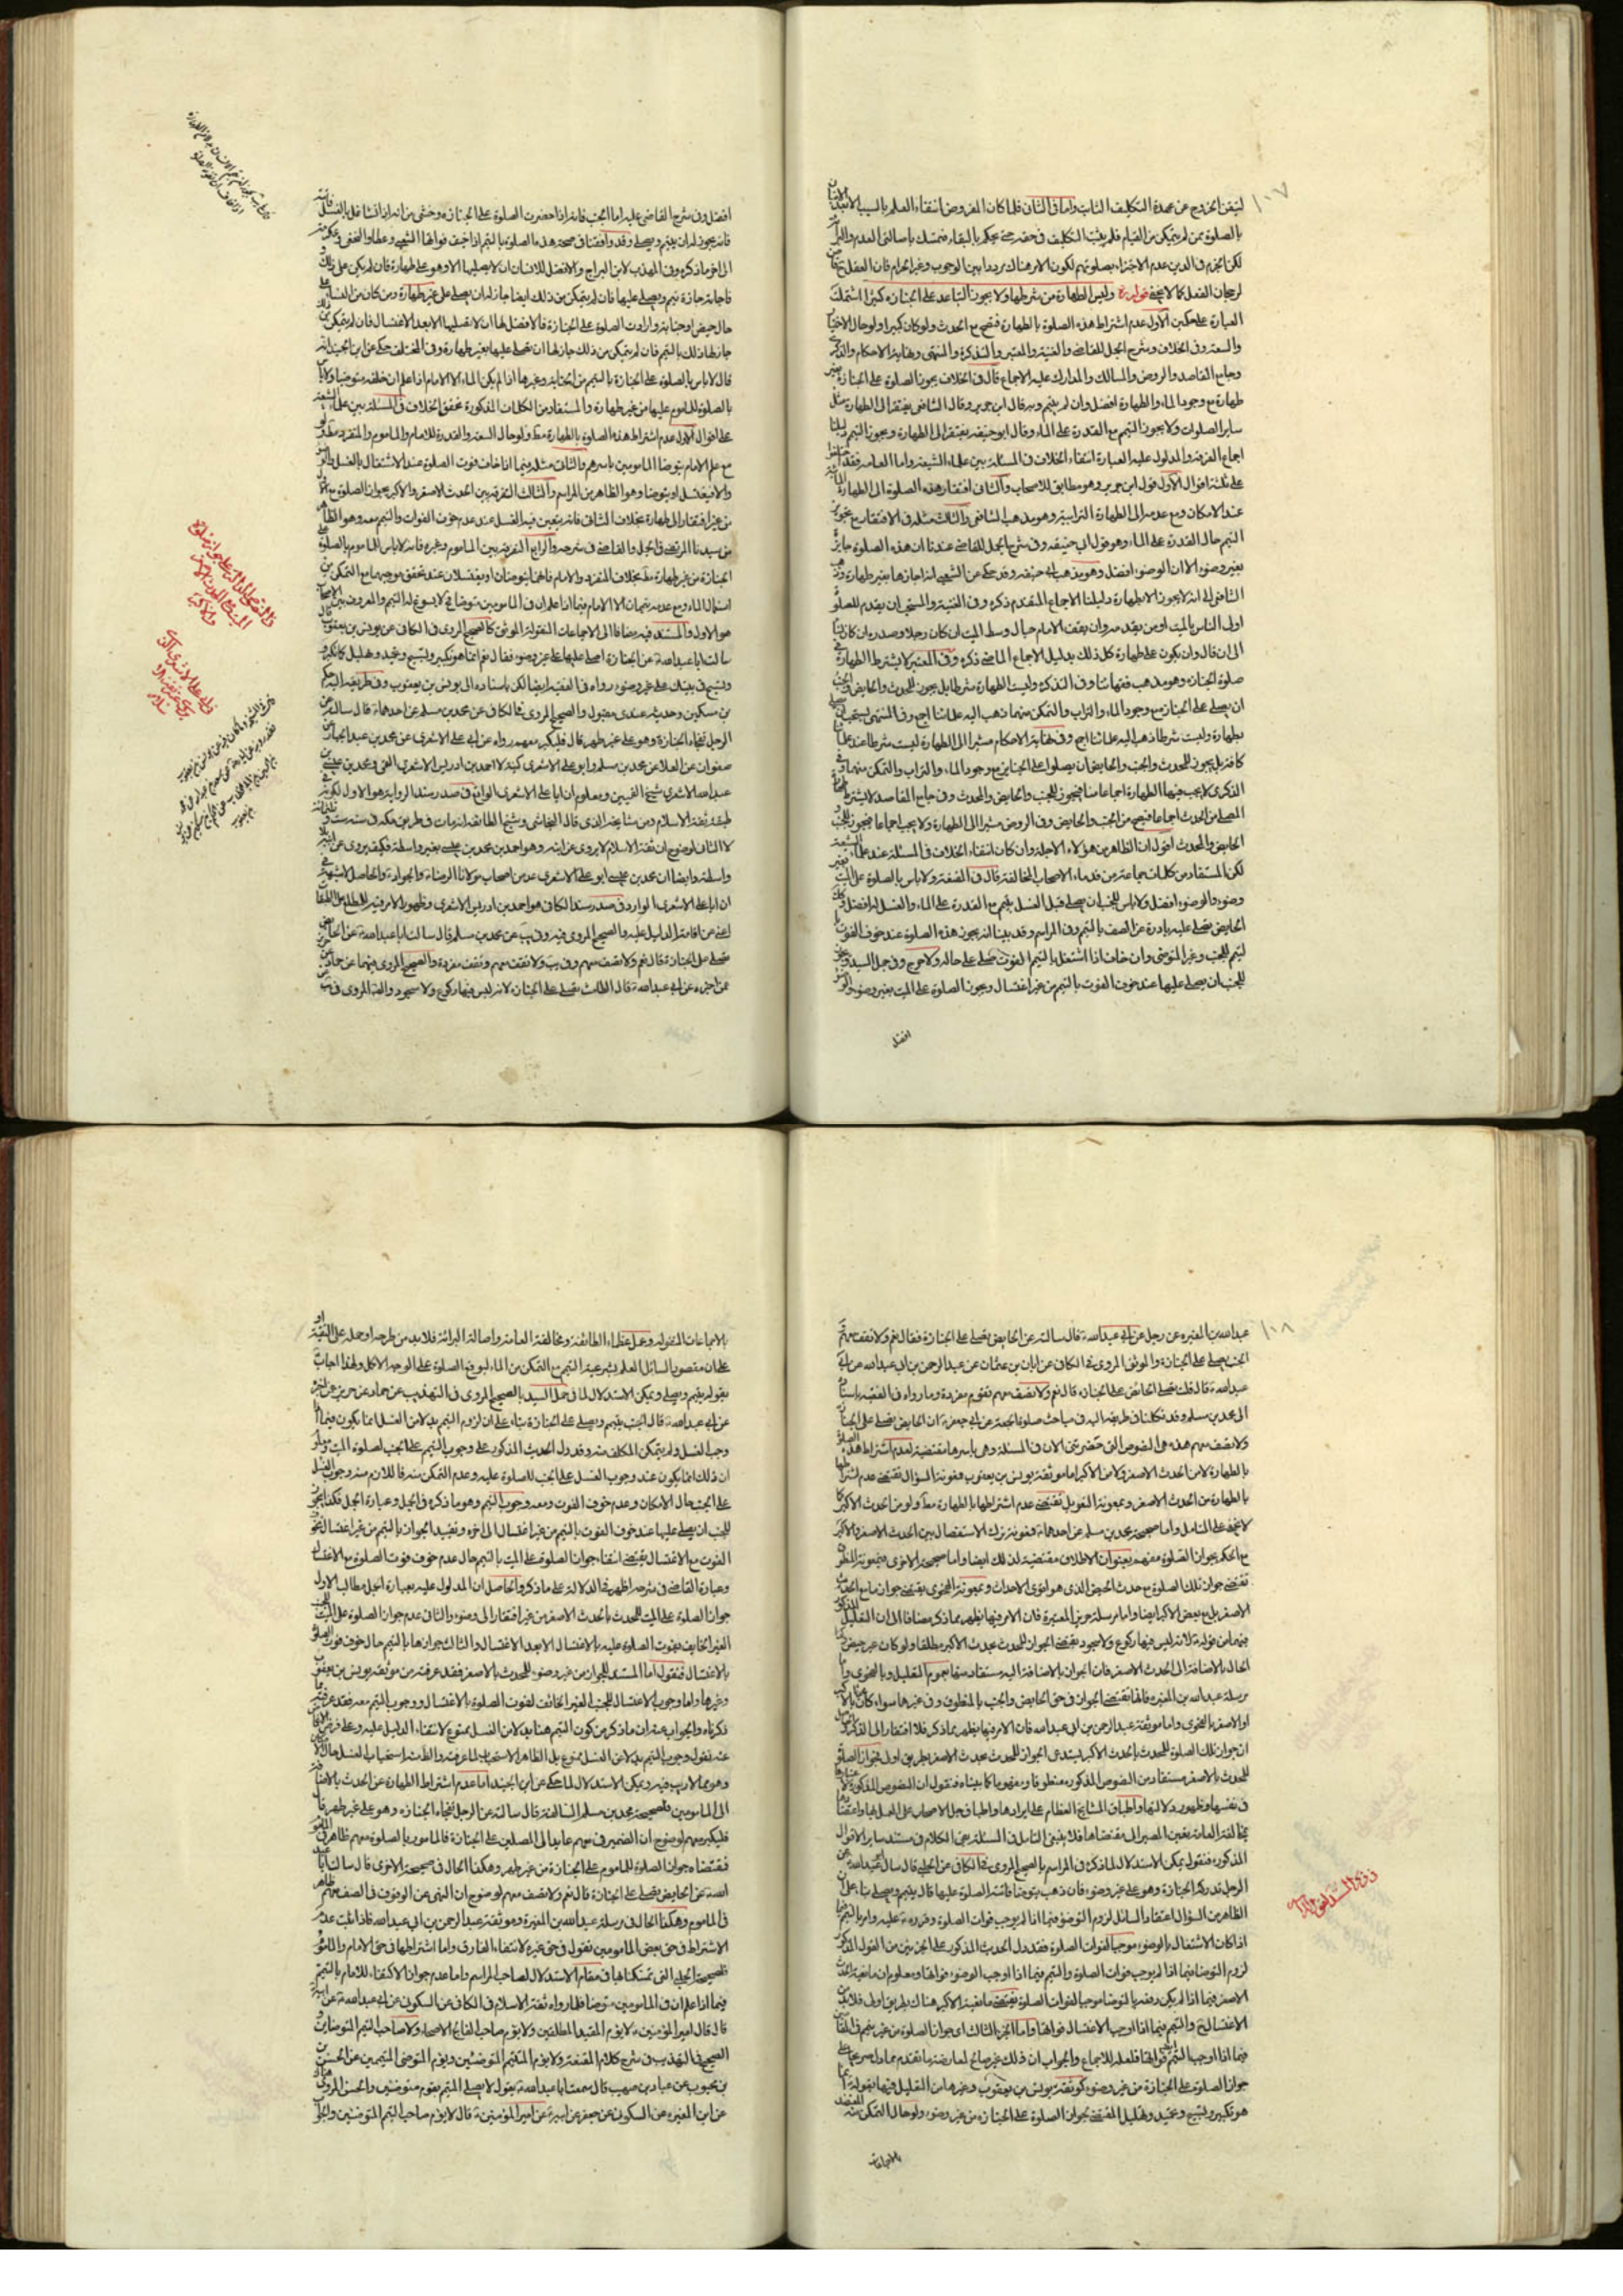 ١٠٧
ليقن الخروج عن عهدة التكليف الثابت واما في الثاني فلما كان المفروض انتفاء العلم بالسبب
بالصلوة بمن لم يتمكن من القيام فلم يثبت التكليف في حقه حتى يحكم بالبقاء فتمسك باصالتي العدم والبراءة
لكن الجزم في الدين عدم الاجتزاء بصلوتهم لكون الامر هناك مرددا بين الوجوب وغير الحرام فان العقل
لرجحان الفعل كما لا يخفى قوله وليس الطهارة من شرطها ولا يجوز التباعد عن الجنازة كثيرا اشتملت
العبارة على حكمين الاول عدم اشتراط هذه الصلوة بالطهارة فتصح مع الحدث ولو كان كبيرا ولو حال الاختيار
والسعة وفي الخلاف وشرح الجمل للقاضي والغنية والمعتبر والتذكرة والمنتهى ونهاية الاحكام والذكرى
وجامع المقاصد والروض والمسالك والمدارك عليه الاجماع قال في الخلاف يجوز الصلوة على الجنازة بغير
طهارة مع وجود الماء والطهارة افضل وان لم يتيمم وبه قال ابن جرير وقال الشافعي يفتقر الى الطهارة مثل
ساير الصلوات ولا يجوز التيمم مع القدرة على الماء وقال ابو حنيفة يفتقر الى الطهارة ويجوز التيمم دليلنا
اجماع الفرقة والمدلول عليه العبارة انتفاء الخلاف في المسئلة بين علماء الشيعة واما العامة فقد اختلفوا
على ثلثة اقوال الاول قول ابن جرير وهو مطابق للاصحاب والثاني افتقار هذه الصلوة الى الطهارة المائية
عند الامكان ومع عدمه الى الطهارة الترابية وهو مذهب الشافعي والثالث مثله في الافتقار مع تجويز
التيمم حال القدرة على الماء وهو قول ابي حنيفة وفي شرح الجمل للقاضي عندنا ان هذه الصلوة جايزة
بغير وضوء الا ان الوضوء افضل وهو مذهب ابي حنيفة وقد حكي عن الشعبي انه اجازها بغير طهارة وذهب
الشافعي الى انه لا يجوز الا بطهارة دليلنا الاجماع المتقدم ذكره وفي الغنية والمستحب ان يقدم للصلوة
اولى الناس بالميت او من يقدمه وان يقف الامام حيال وسط الميت ان كان رجلا وصدره ان كان
الى ان قال وان يكون على طهارة كل ذلك بدليل الاجماع الماضي ذكره وفي المعتبر لا يشترط الطهارة في
صلوة الجنازة وهو مذهب فقهائنا وفي التذكرة وليست الطهارة شرطا بل يجوز للمحدث والحايض والجنب
ان يصلي على الجنائز مع وجود الماء والتراب والتمكن منهما ذهب اليه علمائنا اجمع وفي المنتهى يستحب ان يصلي
بطهارة وليست شرطا ذهب اليه علمائنا اجمع وفي نهاية الاحكام مشيرا الى الطهارة ليست شرطا عند علمائنا
كافة بل يجوز للمحدث والجنب والحايض ان يصلوا على الجنايز مع وجود الماء والتراب والتمكن منهما وفي
الذكرى لا يجب فيها الطهارة اجماعا منا فيجوز للجنب والحايض والمحدث وفي جامع المقاصد لا يشترط طهارة
المصلي من الحدث اجماعا فتصح من الجنب والحايض وفي الروض مشيرا الى الطهارة ولا يجب اجماعا فيجوز للجنب
الحايض والمحدث اقول ان الظاهر من هؤلاء الاجلة وان كان انتفاء الخلاف في المسئلة عند علماء الشيعة
لكن المستفاد من كلمات جماعة من قدماء الاصحاب المخالفة قال في المقنعة ولا باس بالصلوة على الميت بغير
وضوء والوضوء افضل ولا باس للجنب ان يصلي قبل الغسل بتيمم مع القدرة على الماء والغسل له افضل وكذلك
الحايض تصلي عليه بارزة عن الصف بالتيمم وفي المراسم وقد بينا انه يجوز هذه الصلوة عند خوف الفوت
لتيمم للجنب وغير المتوضي وان خاف اذا اشتغل بالتيمم الفوت صلى على حاله ولا حرج وفي جمل السيد ويجوز
للجنب ان يصلي عليها عند خوف الفوت بالتيمم من غير اغتسال ويجوز الصلوة على الميت بغير وضوء والوضوء
افضل
افضل وفي شرح القاضي عليه اما الجنب فانه اذا حضرت الصلوة على الجنازة وخشي من انه اذا تشاغل بالغسل فاتته
فانه يجوز له ان يتيمم ويصلي وقد وافقنا في صحة هذه الصلوة بالتيمم اذا خيف فواتها الشعبي وعطا والنخعي وعكرمة
الى اخر ما ذكره وفي المهذب لابن البراج والافضل للانسان ان لا يصليها الا وهو على طهارة فان لم يكن على ذلك
فاجاته جنازة تيمم وصلى عليها فان لم يتمكن من ذلك ايضا جاز له ان يصلي على غير طهارة ومن كان من النساء على
حال حيض او جنابة وارادت الصلوة على الجنازة فالافضل لها ان لا تصليها الا بعد الاغتسال فان لم يتمكن من ذلك
جاز لها ذلك بالتيمم فان لم يتمكن من ذلك جاز لها ان تصلي عليها بغير طهارة وفي المختلف حكي عن ابن الجنيد انه
قال لا باس بالصلوة على الجنازة بالتيمم من الجنابة وغيرها اذا لم يكن الماء الا الامام اذا علم ان خلفه متوضيا ولا باس
بالصلوة للماموم عليها من غير طهارة والمستفاد من الكلمات المذكورة تحقق الخلاف في المسئلة بين علماء الشيعة
على اقوال الاول عدم اشتراط هذه الصلوة بالطهارة مط ولو حال السعة والقدرة للامام والماموم والمنفرد مط ولو
مع علم الامام بتوضا المامومين باسرهم والثاني مثله فيما اذا خاف فوت الصلوة عند الاشتغال بالغسل والوضوء
والا فيغتسل او يتوضا وهو الظاهر من المراسم والثالث التفرقة بين الحدث الاصغر والاكبر بجواز الصلوة مع الاول
من غير افتقار الى طهارة بخلاف الثاني فانه يتعين فيه الغسل عند عدم خوف الفوات والتيمم معه وهو الظاهر
من سيدنا المرتضى في الجمل والقاضي في شرحه والرابع التفرقة بين الماموم وغيره فانه لا باس للماموم بالصلوة على
الجنازة من غير طهارة مط بخلاف المنفرد والامام فانهما يتوضئان او يغتسلان عند تحقق موجبهما مع التمكن من
استعمال الماء ومع عدمه يتيممان الا الامام فيما اذا علم ان في المامومين متوضئا فلا يسوغ له التيمم والمعروف بين الاصحاب
هو الاول والمستند فيه مضافا الى الاجماعات المنقولة الموثق كالصحيح المروي في الكافي عن يونس بن يعقوب قال
سالت ابا عبد الله ع عن الجنازة اصلي عليها على غير وضوء فقال نعم انما هو تكبير وتسبيح وتحميد وتهليل كما تكبر
وتسبح في بيتك على غير وضوء رواه في الفقيه ايضا لكن باسناده الى يونس بن يعقوب وفي طريقه اليه حكم
بن مسكين وحديثه عندي مقبول والصحيح المروي في الكافي عن محمد بن مسلم عن احدهما ع قال سالته عن
الرجل تفجاه الجنازة وهو على غير طهر قال فليكبر معهم رواه عن ابي علي الاشعري عن محمد بن عبد الجبار عن
صفوان عن العلا عن محمد بن مسلم وابو علي الاشعري كنية لاحمد بن ادريس الاشعري القمي ومحمد بن عيسى بن
عبد الله الاشعري شيخ القميين ومعلوم ان ابا علي الاشعري الواقع في صدر سند الرواية هو الاول لكونه في
طبقة ثقة الاسلام ومن مشايخه الذي قال النجاشي وشيخ الطائفة انه مات في طريق مكة في سنة ست وثلثمائة
لا الثاني لوضوح ان ثقة الاسلام لا يروي عن ابنه وهو احمد بن محمد بن عيسى بغير واسطة فكيف يروي عن ابيه بلا
واسطة وايضا ان محمد بن عيسى ابو علي الاشعري عد من اصحاب مولانا الرضا ع والجواد ع والحاصل لا شبهة في
ان ابا علي الاشعري الوارد في صدر سند الكافي هو احمد بن ادريس الاشعري وظهور الامر فيه للمطلع على الطبقات
اغنى عن اقامة الدليل عليه والصحيح المروي فيه وفي يب عن محمد بن مسلم قال سالت ابا عبد الله ع عن الحايض
تصلي على الجنازة قال نعم ولا تقف معهم وفي يب ولا تقف معهم وتقف مفردة والصحيح المروي فيهما عن حماد بن عيسى عن حريز
عمن اخبره عن ابي عبد الله ع قال الطامث تصلي على الجنازة لانه ليس فيها ركوع ولا سجود والثقة المروي في يب عن
١٠٨
عبد الله بن المغيرة عن رجل عن ابي عبد الله ع قال سالته عن الحايض تصلي على الجنازة فقال نعم ولا تقف معهم
الجنب يصلي على الجنازة والموثق المروي في الكافي عن ابان بن عثمان عن عبد الرحمن بن ابي عبد الله عن ابي
عبد الله ع قال قلت تصلي الحائض على الجنازة قال نعم ولا تقف معهم تقوم مفردة وما رواه في الفقيه باسناده
الى محمد بن مسلم وقد تكلمنا في طريقه اليه في مباحث صلوة الجمعة عن ابي جعفر ع ان الحايض تصلي على الجنازة
ولا تقف معهم هذه هي النصوص التي حضرتني الان في المسئلة وهي باسرها مقتضية لعدم اشتراط هذه الصلوة
بالطهارة لا من الحدث الاصغر ولا من الاكبر اما موثقة يونس بن يعقوب فمؤنة السؤال تقتضي عدم اشتراطها
بالطهارة من الحدث الاصغر وبمعونة التعويل تقتضي عدم اشتراطها بالطهارة مط ولو من الحدث الاكبر كما
لا يخفى على التامل واما صحيحة محمد بن مسلم عن احدهما ع فمؤنة ترك الاستفصال بين الحدث الاصغر والاكبر
مع الحكم بجواز الصلوة معهم بعنوان الاطلاق مقتضية لذلك ايضا واما صحيحته الاخرى فبمعونة المنطوق
تقتضي جواز تلك الصلوة مع حدث الحيض الذي هو اقوى الاحداث وبمعونة الفحوى يقتضي جوازها مع الحدث
الاصغر بل مع بعض الاكبر ايضا واما مرسلة حريز المعتبرة فان الامر فيها يظهر بما ذكر مضافا الى ان التعليل المذكور
فيها من قوله ع لانه ليس فيها ركوع ولا سجود يقتضي الجواز للمحدث بحدث الاكبر مطلقا ولو كان غير حيض كما
الحال بالاضافة الى الحدث الاصغر فان الجواز بالاضافة اليه مستفاد منها بعموم التعليل وبالفحوى واما
مرسلة عبد الله بن المغيرة فانها تقتضي الجواز في حق الحايض والجنب بالمنطوق وفي غيرهما سواء كان بالاكبر
او الاصغر بالفحوى واما موثقة عبد الرحمن بن ابي عبد الله فان الامر فيها يظهر بما ذكر فلا افتقار الى الذكر والحاصل
ان جواز تلك الصلوة للمحدث بالحدث الاكبر يستدعي الجواز للمحدث بحدث الاصغر بطريق اولى فجواز الصلوة
للمحدث بالاصغر مستفاد من النصوص المذكورة منطوقا ومفهوما كما بيناه فنقول ان النصوص المذكورة لاعتبارها
في نفسها وظهور دلالتها واطباق المشايخ العظام على ايرادها واطباق جل الاصحاب على العمل بها واعتضادها
بمخالفة العامة يتعين المصير الى مقتضاها فلا ينبغي التامل في المسئلة بقي الكلام في مستند ساير الاقوال
المذكورة فنقول يمكن الاستدلال لما ذكره في المراسم بالصحيح المروي في الكافي عن الحلبي قال سئل ابو عبد الله ع عن
الرجل تدركه الجنازة وهو على غير وضوء فان ذهب يتوضا فاتته الصلوة عليها قال يتيمم ويصلي بناء على ان
الظاهر من السؤال اعتقاد السائل لزوم التوضؤ فيما اذا لم يوجب فوات الصلوة وقرره ع عليه وامر بالتيمم فيما
اذا كان الاشتغال بالوضوء موجبا لفوات الصلوة فقد دل الحديث المذكور على الجزئين من القول المذكور
لزوم التوضا فيما اذا لم يوجب فوات الصلوة والتيمم فيما اذا اوجب الوضوء فواتها ومعلوم ان مانعية الحدث
الاصغر فيما اذا لم يكن رفعه بالتوضا موجبا لفوات الصلوة تقتضي مانعية الاكبر هناك بطريق اولى فلا بد من
الاغتسال ح والتيمم فيما اذا اوجب الاغتسال فواتها واما الجزء الثالث اي جواز الصلوة من غير تيمم في المقامين
فيما اذا اوجب التيمم فواتها فلعله للاجماع والجواب ان ذلك غير صالح لمعارضة ما تقدم مما دل صريحا على
جواز الصلوة على الجنازة من غير وضوء كموثقة يونس بن يعقوب وغيرها من التعليل فيها بقوله ع انما
هو تكبير وتسبيح وتحميد وتهليل المقتضي لجواز الصلوة على الجنازة من غير وضوء ولو حال التمكن منه المعتضد
بالاجماعات
رفع المستند لقول الاول
بالاجماعات المنقولة وعمل عظماء الطائفة ومخالفة العامة واصالة البرائة فلا بد من طرحه او حمله على التقية او
على ان مقصود السائل العلم بشرعية التيمم مع التمكن من الماء لوقوع الصلوة على الوجه الاكمل ولهذا اجاب
بقوله يتيمم ويصلي ويمكن الاستدلال لما في جمل السيد بالصحيح المروي في التهذيب عن حماد عن حريز عمن اخبره
عن ابي عبد الله ع قال الجنب يتيمم ويصلي على الجنازة بناء على ان لزوم التيمم بدلا من الغسل انما يكون فيما اذا
وجب الغسل ولم يتمكن المكلف منه وقد دل الحديث المذكور على وجوب التيمم على الجنب لصلوة الميت ومعلوم
ان ذلك انما يكون عند وجوب الغسل على الجنب للصلوة عليه وعدم التمكن منه فاللازم منه وجوب الغسل
على الجنب حال الامكان وعدم خوف الفوت ومعه وجوب التيمم وهو ما ذكره في الجمل وعبارة الجمل هكذا يجوز
للجنب ان يصلي عليها عند خوف الفوت بالتيمم من غير اغتسال الى اخره وتقييد الجواز بالتيمم من غير اغتسال بخوف
الفوت مع الاغتسال يقتضي انتفاء جواز الصلوة على الميت بالتيمم حال عدم خوف فوت الصلوة مع الاغتسال
وعبارة القاضي في شرحه اظهر في الدلالة على ما ذكر والحاصل ان المدلول عليه بعبارة الجمل مطالب الاول
جواز الصلوة على الميت للمحدث بالحدث الاصغر من غير افتقار الى وضوء والثاني عدم جواز الصلوة على الميت للجنب
الغير الخايف بفوت الصلوة عليه بالاغتسال الا بعد الاغتسال والثالث جوازها بالتيمم حال خوف فوت الصلوة
بالاغتسال فنقول اما المستند للجواز من غير وضوء للمحدث بالاصغر فقد عرفته من موثقة يونس بن يعقوب
وغيرها واما وجوب الاغتسال للجنب الغير الخائف لفوت الصلوة بالاغتسال ووجوب التيمم معه فقد عرفته بما
ذكرناه والجواب عنه ان ما ذكر من كون التيمم هنا بدلا من الغسل ممنوع لانتفاء الدليل عليه وعلى فرض الاغماض
عنه نقول وجوب التيمم بدلا عن الغسل ممنوع بل الظاهر الاستحباب لما عرفت والثابت استحباب الغسل حال الامكان
وهو مما لا ريب فيه ويمكن الاستدلال لما حكي عن ابن الجنيد اما عدم اشتراط الطهارة عن الحدث بالاضافة
الى المامومين فلصحيحة محمد بن مسلم السالفة قال سالته عن الرجل تفجاه الجنازة وهو على غير طهر قال
فليكبر معهم لوضوح ان الضمير في معهم عايد الى المصلين على الجنازة فالمامور بالصلوة معهم ظاهر في الماموم
فمقتضاه جواز الصلوة للماموم على الجنازة من غير طهر وهكذا الحال في صحيحته الاخرى قال سالت ابا عبد
الله ع عن الحايض تصلي على الجنازة قال نعم ولا تقف معهم لوضوح ان النهي عن الوقوف في الصف معهم ظاهر
في الماموم وهكذا الحال في مرسلة عبد الله بن المغيرة وموثقة عبد الرحمن بن ابي عبد الله فاذا ثبت عدم
الاشتراط في حق بعض المامومين نقول في حق غيره لانتفاء الفارق واما اشتراطها في حق الامام والمأموم
فلصحيحة الحلبي التي تمسكنا بها في مقام الاستدلال لصاحب المراسم واما عدم جواز الاكتفاء للامام بالتيمم
فيما اذا علم ان في المامومين متوضا فلما رواه ثقة الاسلام في الكافي عن السكوني عن ابي عبد الله ع عن ابيه
قال قال امير المؤمنين ع لا يؤم المقيد المطلقين ولا يؤم صاحب الفالج الاصحاء ولا صاحب التيمم المتوضئين و
الصحيح في التهذيب في شرح كلام المقنعة ولا يؤم المتيمم المتوضئين ويؤم المتوضي المتيممين عن الحسن
بن محبوب عن عباد بن صهيب قال سمعت ابا عبد الله ع يقول لا يصلي المتيمم بقوم متوضئين والحسن المروي
عن ابن المغيرة عن السكوني عن جعفر عن ابيه عن امير المؤمنين ع قال لا يؤم صاحب التيمم المتوضئين والجواب